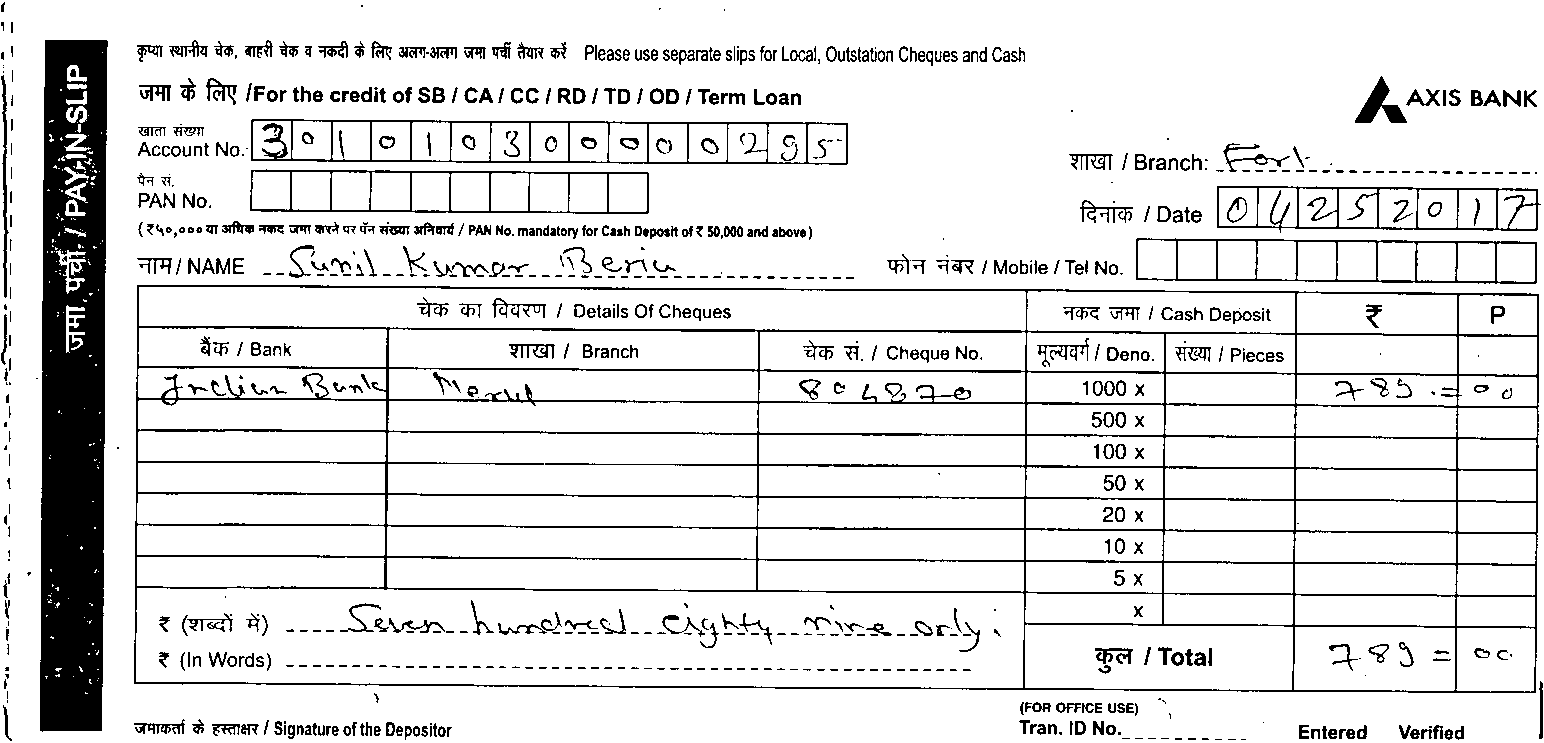 जमा पर्ची / PAY-IN-SLIP
कृप्या स्थानीय चेक, बाहरी चेक व नकदी के लिए अलग-अलग जमा पर्ची तैयार करें Please use separate slips for Local, Outstation Cheques and Cash
जमा के लिए /For the credit of SB / CA / CC / RD / TD / OD / Term Loan
AXIS BANK
खाता संख्या
Account No. 301010300000295
शाखा / Branch: Fort
पैन सं.
PAN No.
दिनांक / Date 04252017
(₹५०,००० या अधिक नकद जमा करने पर पॅन संख्या अनिवार्य / PAN No. mandatory for Cash Deposit of ₹ 50,000 and above)
नाम / NAME Sunil Kumar Beria फोन नंबर / Mobile / Tel No.
चेक का विवरण / Details Of Cheques नकद जमा / Cash Deposit ₹ P
बैंक / Bank शाखा / Branch चेक सं. / Cheque No. मूल्यवर्ग / Deno. संख्या / Pieces
Indian Bank 804870 1000 x 789.= 00
500 x
100 x
50 x
20 x
10 x
5 x
x
₹ (शब्दों में) Seven hundred eighty nine only.
₹ (In Words)
कुल / Total 789 = 00
जमाकर्ता के हस्ताक्षर / Signature of the Depositor
(FOR OFFICE USE)
Tran. ID No. Entered Verified